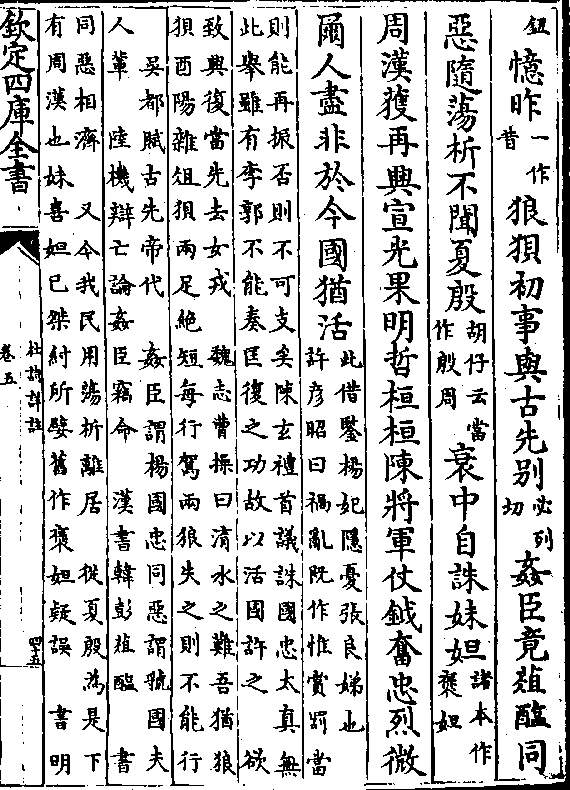 鈕 憶昨 一作昔 狼狽初事與古先别 必列切 姦臣竟葅醢同
惡隨蕩析不聞夏殷 胡仔云當作殷周 衰中自誅妹妲 諸本作襃妲
周漢獲再興宣光果明哲桓桓陳將軍仗鉞奮忠烈微
爾人盡非於今國猶活 此借鑒楊妃隱憂張良娣也
許彦昭曰禍亂既作惟賞罰當
則能再振否則不可支矣陳玄禮首議誅國忠太真無
此舉雖有李郭不能奏匡復之功故以活國許之 欲
致興復當先去女戎 魏志曹操曰淯水之難吾猶狼
狽酉陽雜俎狽兩足絶短每行駕兩狼失之則不能行
吳都賦古先帝代 姦臣謂楊國忠同惡謂虢國夫
人輩 陸機辯亡論姦臣竊命 漢書韓彭葅醢 書
同惡相濟 又今我民用蕩析離居 從夏殷為是下
有周漢也妹喜妲已桀紂所嬖舊作襃妲疑誤 書明
欽定四庫全書
杜詩詳註
卷五
四十五